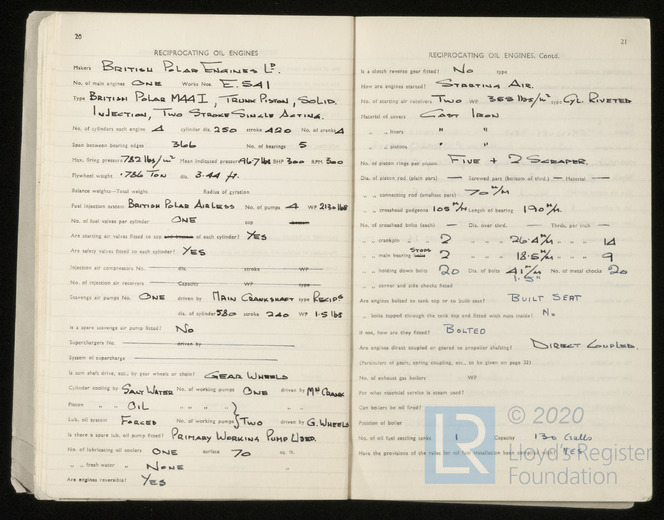 20
RECIPROCATING OIL ENGINES
Makers BRITISH POLAR ENGINES LD.
No. of main engines ONE Works Nos. E.541
Type BRITISH POLAR M44I, TRUNK PISTON, SOLID
INJECTION, TWO STROKE SINGLE ACTING.
No. of cylinders each engine 4 cylinder dia. 250 stroke 420 No. of cranks 4
Span between bearing edges 366 No. of bearings 5
Max. firing pressure 782 lbs/in² Mean indicated pressure 96.7 lbs BHP 300 RPM 300
Flywheel weight .786 TON dia. 3.44 ft.
Balance weights—Total weight Radius of gyration
Fuel injection system BRITISH POLAR AIRLESS No. of pumps 4 WP 2130 lbs
No. of fuel valves per cylinder ONE
Are starting air valves fitted to each cylinder? YES
Are safety valves fitted to each cylinder? YES
Injection air compressors No. dia. stroke WP
No. of injection air receivers Capacity WP type
Scavenge air pumps No. ONE driven by MAIN CRANKSHAFT type RECIPG
dia. of cylinder 580 stroke 240 WP 1.5 lbs
Is a spare scavenge air pump fitted? NO
Superchargers No. driven by
System of supercharge
Is cam shaft drive, etc., by gear wheels or chain? GEAR WHEELS
Cylinder cooling by SALT WATER No. of working pumps ONE driven by MN CRANK
Piston " " OIL " " "
Lub. oil system FORCED No. of working pumps TWO driven by G. WHEELS
Is there a spare lub. oil pump fitted? PRIMARY WORKING PUMP USED
No. of lubricating oil coolers ONE surface 70 sq. ft.
" " fresh water " NONE "
Are engines reversible? YES
21
RECIPROCATING OIL ENGINES, Contd.
Is a clutch reverse gear fitted? NO type
How are engines started? STARTING AIR.
No. of starting air receivers TWO WP 355 lbs/in² type CYL. RIVETED
Material of covers CAST IRON
" " liners " "
" " pistons " "
No. of piston rings per piston FIVE + 2 SCRAPER.
Dia. of piston rod (plain part) — Screwed part (bottom of thrd.) — Material —
" " connecting rod (smallest part) 70 M/M
" " crosshead gudgeons 105 M/M Length of bearing 190 M/M
No. of crosshead bolts (each) — Dia. over thrd. — Thrds. per inch —
" " crankpin " 2 " " " 26.4 M/M " " " 14
" " main bearing STUDS 2 " " " 18.5 M/M " " " 9
" " holding down bolts 20 Dia. of bolts 41 M/M No. of metal chocks 20
" " corner and side chocks fitted
Are engines bolted to tank top or to built seat? BUILT SEAT
" bolts tapped through the tank top and fitted with nuts inside? NO
If not, how are they fitted? BOLTED
Are engines direct coupled or geared to propeller shafting? DIRECT COUPLED.
(Particulars of gears, spring coupling, etc., to be given on page 32)
No. of exhaust gas boilers WP
For what essential service is steam used?
Can boilers be oil fired?
Position of boiler
No. of oil fuel settling tanks 1 Capacity 130 Galls
Have the provisions of the rules for oil fuel installation been complied with? YES
LR
© 2020
Lloyd's Register
Foundation